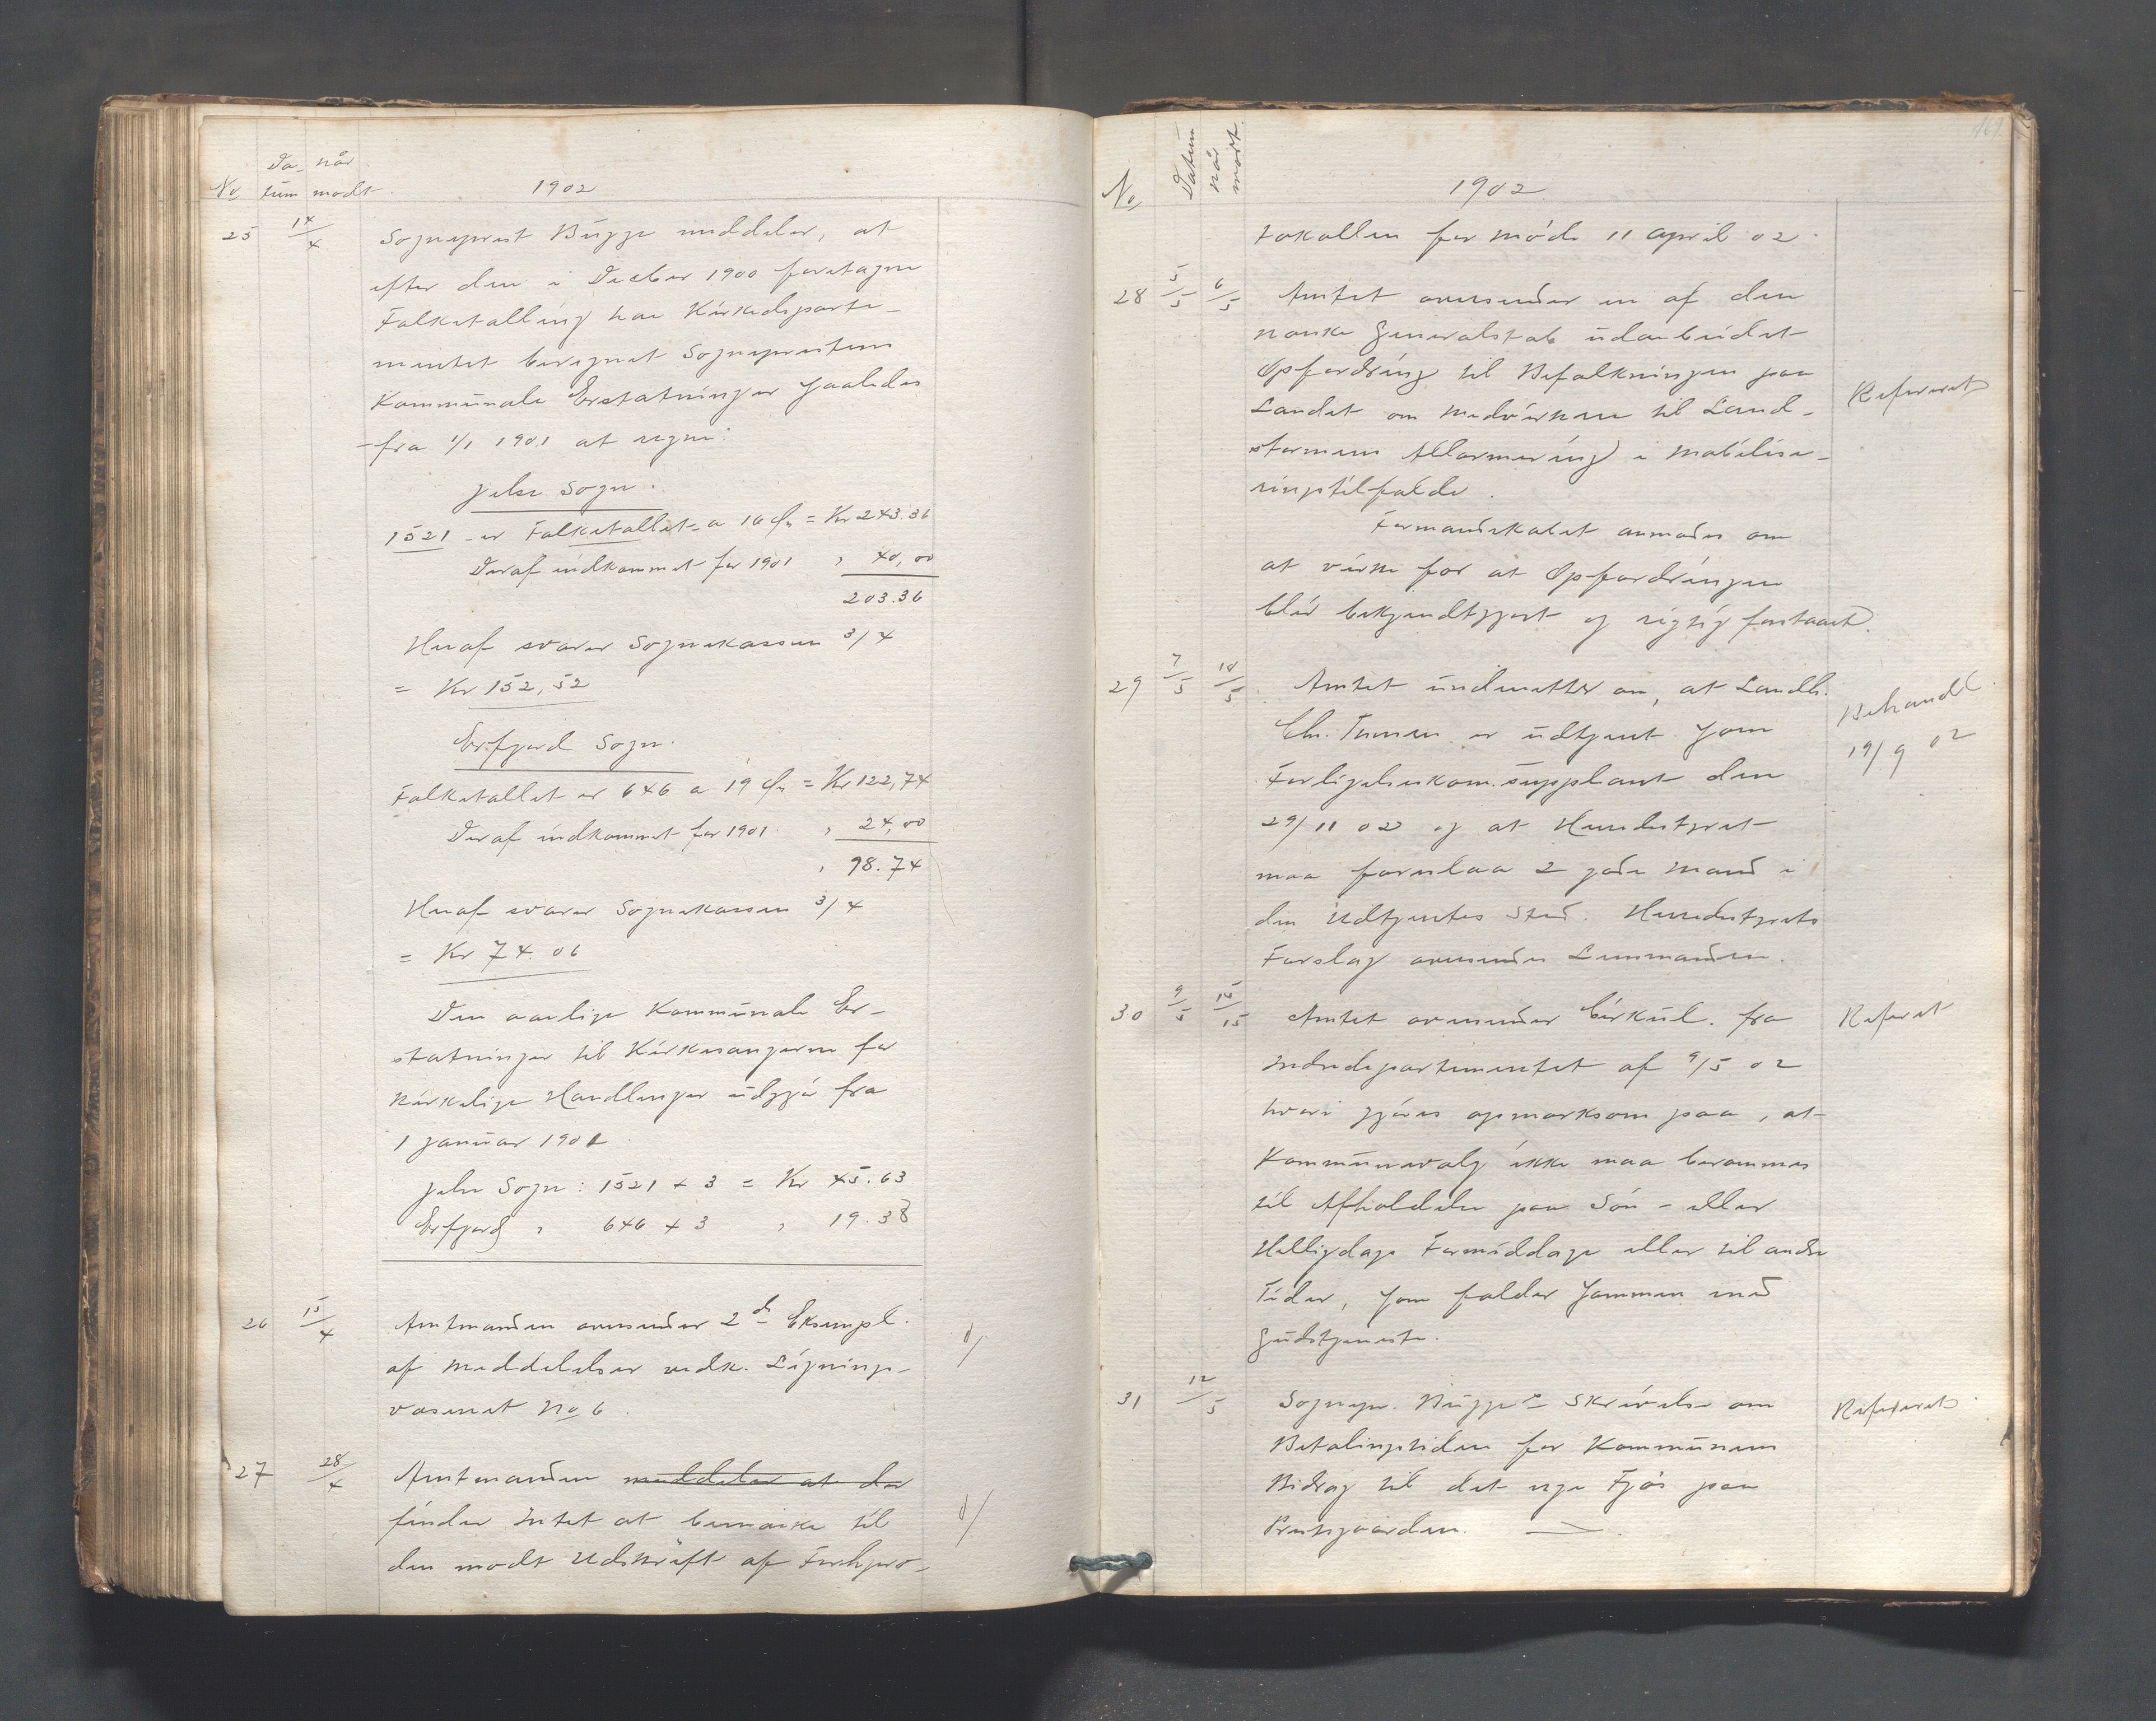 Da- når
No tum modt. 1902
25 14/4 Sogneprest Bugge meddeler, at
efter den i Decber 1900 foretagne
Folketælling har Kirkedeparte-
mentet beregnet Sognepresten
Kommunale Erstatninger saaledes
fra 1/1 1901 at regne:
Jelse Sogn.
1521 er Folketallet a 16 Øre = Kr 243.36
Deraf indkommet for 1901 " 40,00
203.36
Heraf svarer Sognekassen 3/4
= Kr 152,52
Erfjord Sogn.
Folketallet er 646 a 19 Øre = Kr 122,74
Deraf indkommet for 1901 " 24,00
" 98.74
Heraf svarer Sognekassen 3/4
= Kr 74.06
Den aarlige Kommunale Er-
statninger til Kirkesangerne for
Kirkelige Handlinger udgjør fra
1 Januar 1901
Jelse Sogn: 1521 + 3 = Kr 45.63
Erfjord " 646 + 3 " 19.38
26 15/4 Amtmanden oversender 2de Eksempl.
af Meddelelser vedk. Lignings-
væsenet No 6.
27 28/4 Amtmanden meddeler at der
finder Intet at bemærke til
den modt Udskrift af Forhpro-
No Datum når modt. 1902
tokollen for Møde 11 April 02.
28 5/5 6/5 Amtet oversender en af den
norske Generalstab udarbeidet
Opfordring til Befolkningen paa
Landet om Medvirken til Land-
stormens Allarmering i Mobilise-
ringstilfælde. Refereret
Formandskabet anmodes om
at virke for at Opfordringen
blir bekjendtgjort og rigtig forstaaet.
29 7/5 10/5 Amtet underretter om, at Landh.
Chr. Tunen er udtjent som
Forligelseskom.supplant den
29/11 02 og at Herredstyret
maa foreslaa 2 gode Mænd i
den Udtjentes Sted. Herredstyrets
Forslag oversendes Lensmanden.
Behandl. 19/9 02
30 9/5 14/15 Amtet oversender Cirkul. fra
Indredepartementet af 9/5 02
hvori gjøres opmærksom paa, at
Kommunevalg ikke maa berammes
til Afholdelse paa Søn- eller
Helligdags Formiddage eller til andre
Tider, som falder sammen med
Gudstjeneste.
Referet
31 12/5 Sognepr. Bugges Skrivelse om
Betalingstiden for Kommunens
Bidrag til det nye Fjøs paa
Prestegaarden.
Refereret